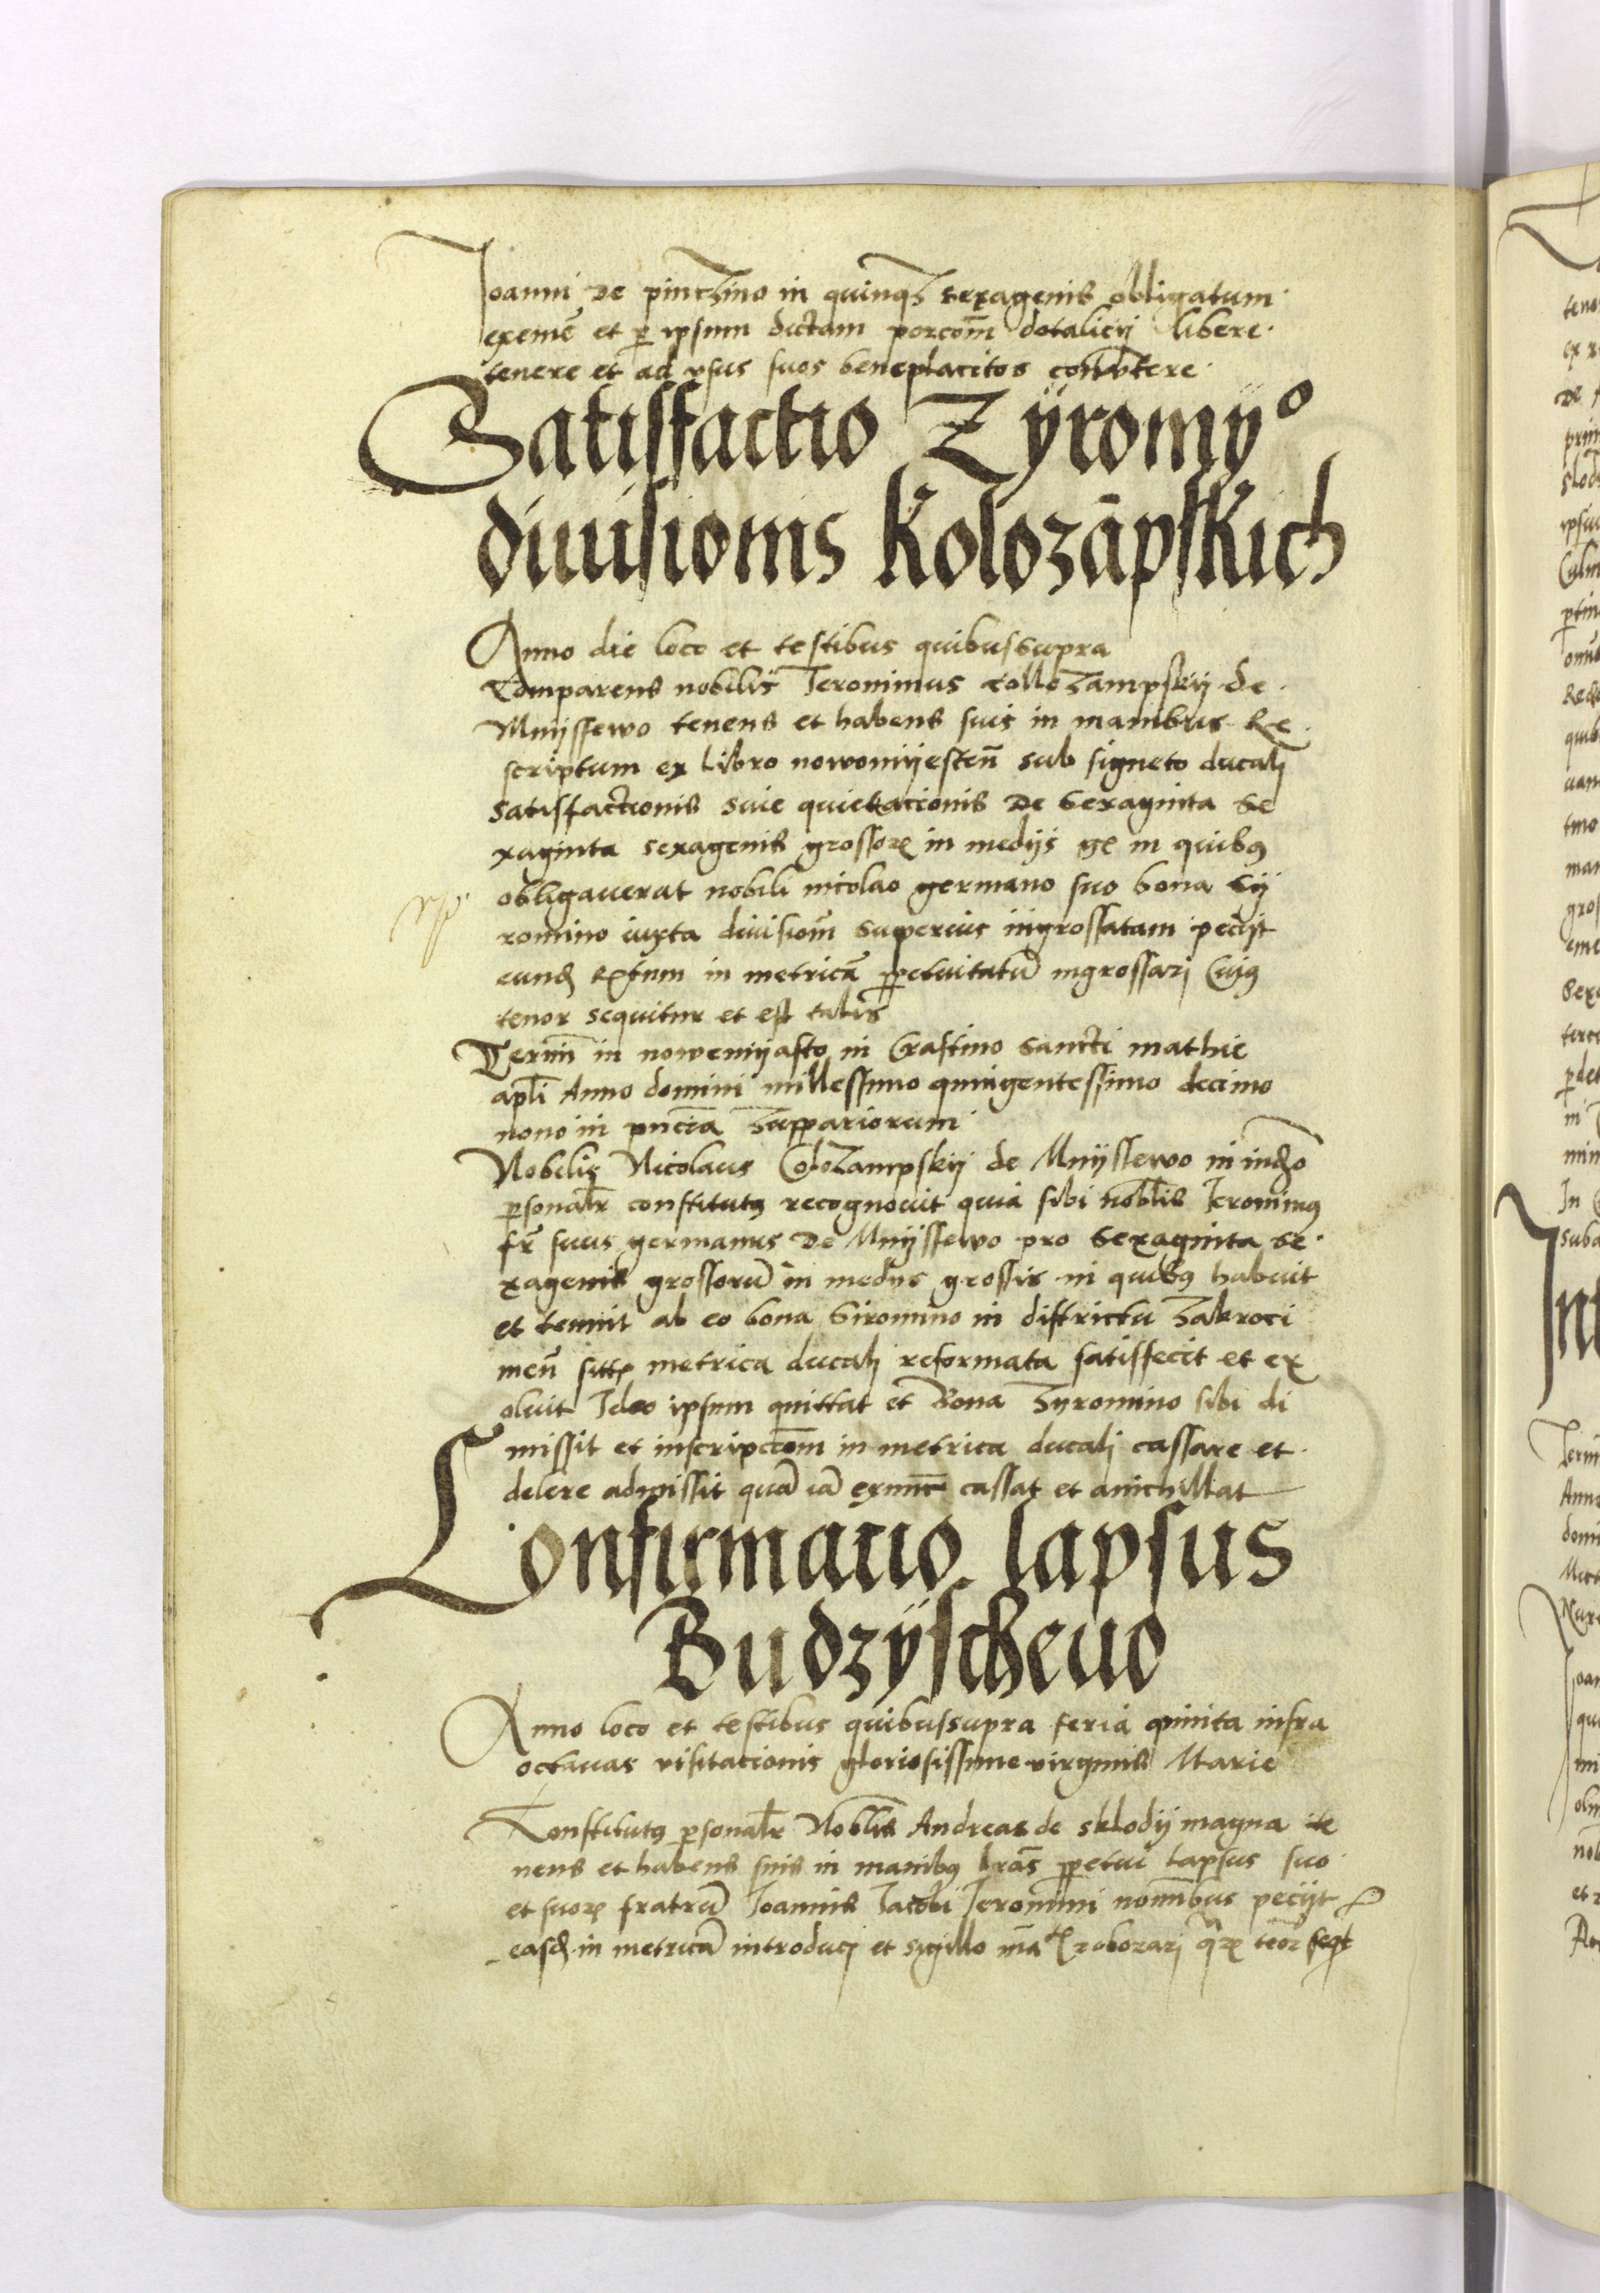 Joanni de pinczino in quinqz sexagenis obligatum
exemē et p ipsum dictam porcōm dotalicij libere
tenere et ad vsus suos beneplacitos conūtere
Satisfactio Zÿromÿº
diuisionis Kolozāpskich
Anno die loco et testibus quibussupra
Comparens nobilis Jeronimus collozampskij de
Mnijssewo tenens et habens suis in manibus Re
scriptum ex libro nowomijesteñ sub signeto ducalj
satisfactionis siue quietacionis de sexaginta se
xaginta sexagenis grossorꝝ in medijs gꝝ in quibꝰ
obligauerat nobili nicolao germano suo bona Sij
romino iuxta diuisionē superius ingrossatam peciit
eundꝫ in metricā ppetuitatū ingrossarj Cuiꝰ
tenor sequitur et est talis
Terminꝰ in nowemijasto in Crastino sancti mathie
apli Anno domini millessimo quingentessimo decimo
nono in pncia Zuppariorum
Nobilis Nicolaus Colozampskij de Mnijssewo in indꝫo
psonalr constitutꝰ recognouit quia sibi noblis Jeronimꝰ
fr suus germanus de Mnijssewo pro sexaginta se
xagenis grossorū in medijs grossis in quibꝰ habuit
et tenuit ab eo bona Siromino in districtu Zakroci
meñ metrica ducalj reformata satisfecit et ex
oluit Ideo ipsum quittat et Bona Zyromino sibi di
missit et inscripccōm in metrica ducalj cassare et
delere admissit quā iā exnunc cassat et anichillat
Confirmacio lapsus
Budzÿscheuo
Anno loco et testibus quibussupra feria quinta infra
octauas visitacionis gloriosissime virginis Marie
Constitutꝰ psonalr Noblis Andreas de sklodij magna te
nens et habens suis in manibꝰ lrās ppetui lapsus suo
et suorꝝ fratrū Joannis Jacobi Jeronimi nominibus peciit
easdꝫ in metricā introducj et sigillo roborarj qrꝝ teor seqt